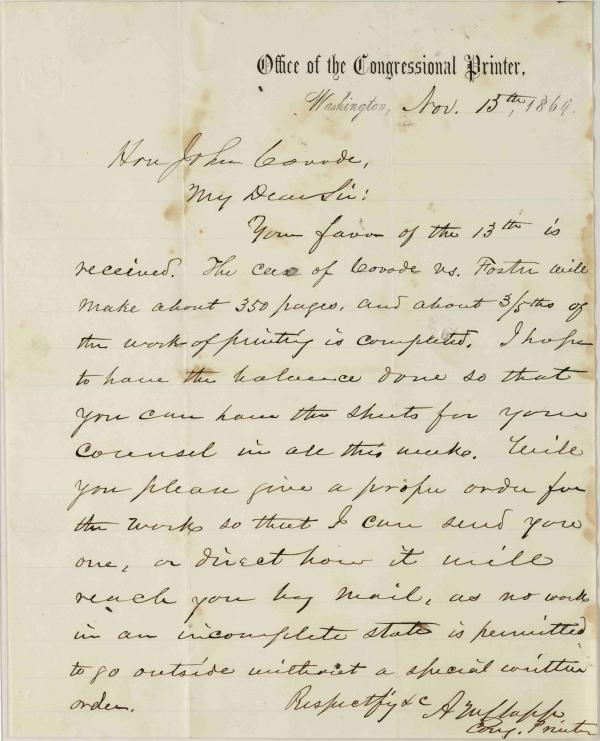 Office of the Congressional Printer,
Washington, Nov. 15th, 1869.
Hon John Covode,
My Dear Sir:
Your favor of the 13th is
received. The case of Covode vs. Foster will
make about 350 pages, and about 3/5ths of
the work of printing is completed. I hope
to have the balance done so that
you can have the sheets for your
counsel in all this week. Will
you please give a proper order for
the work so that I can send you
one, or direct how it will
reach you by mail, as no work
in an incomplete state is permitted
to go outside without a special written
order.
Respectfy &c A M Clapp
Cong. Printer